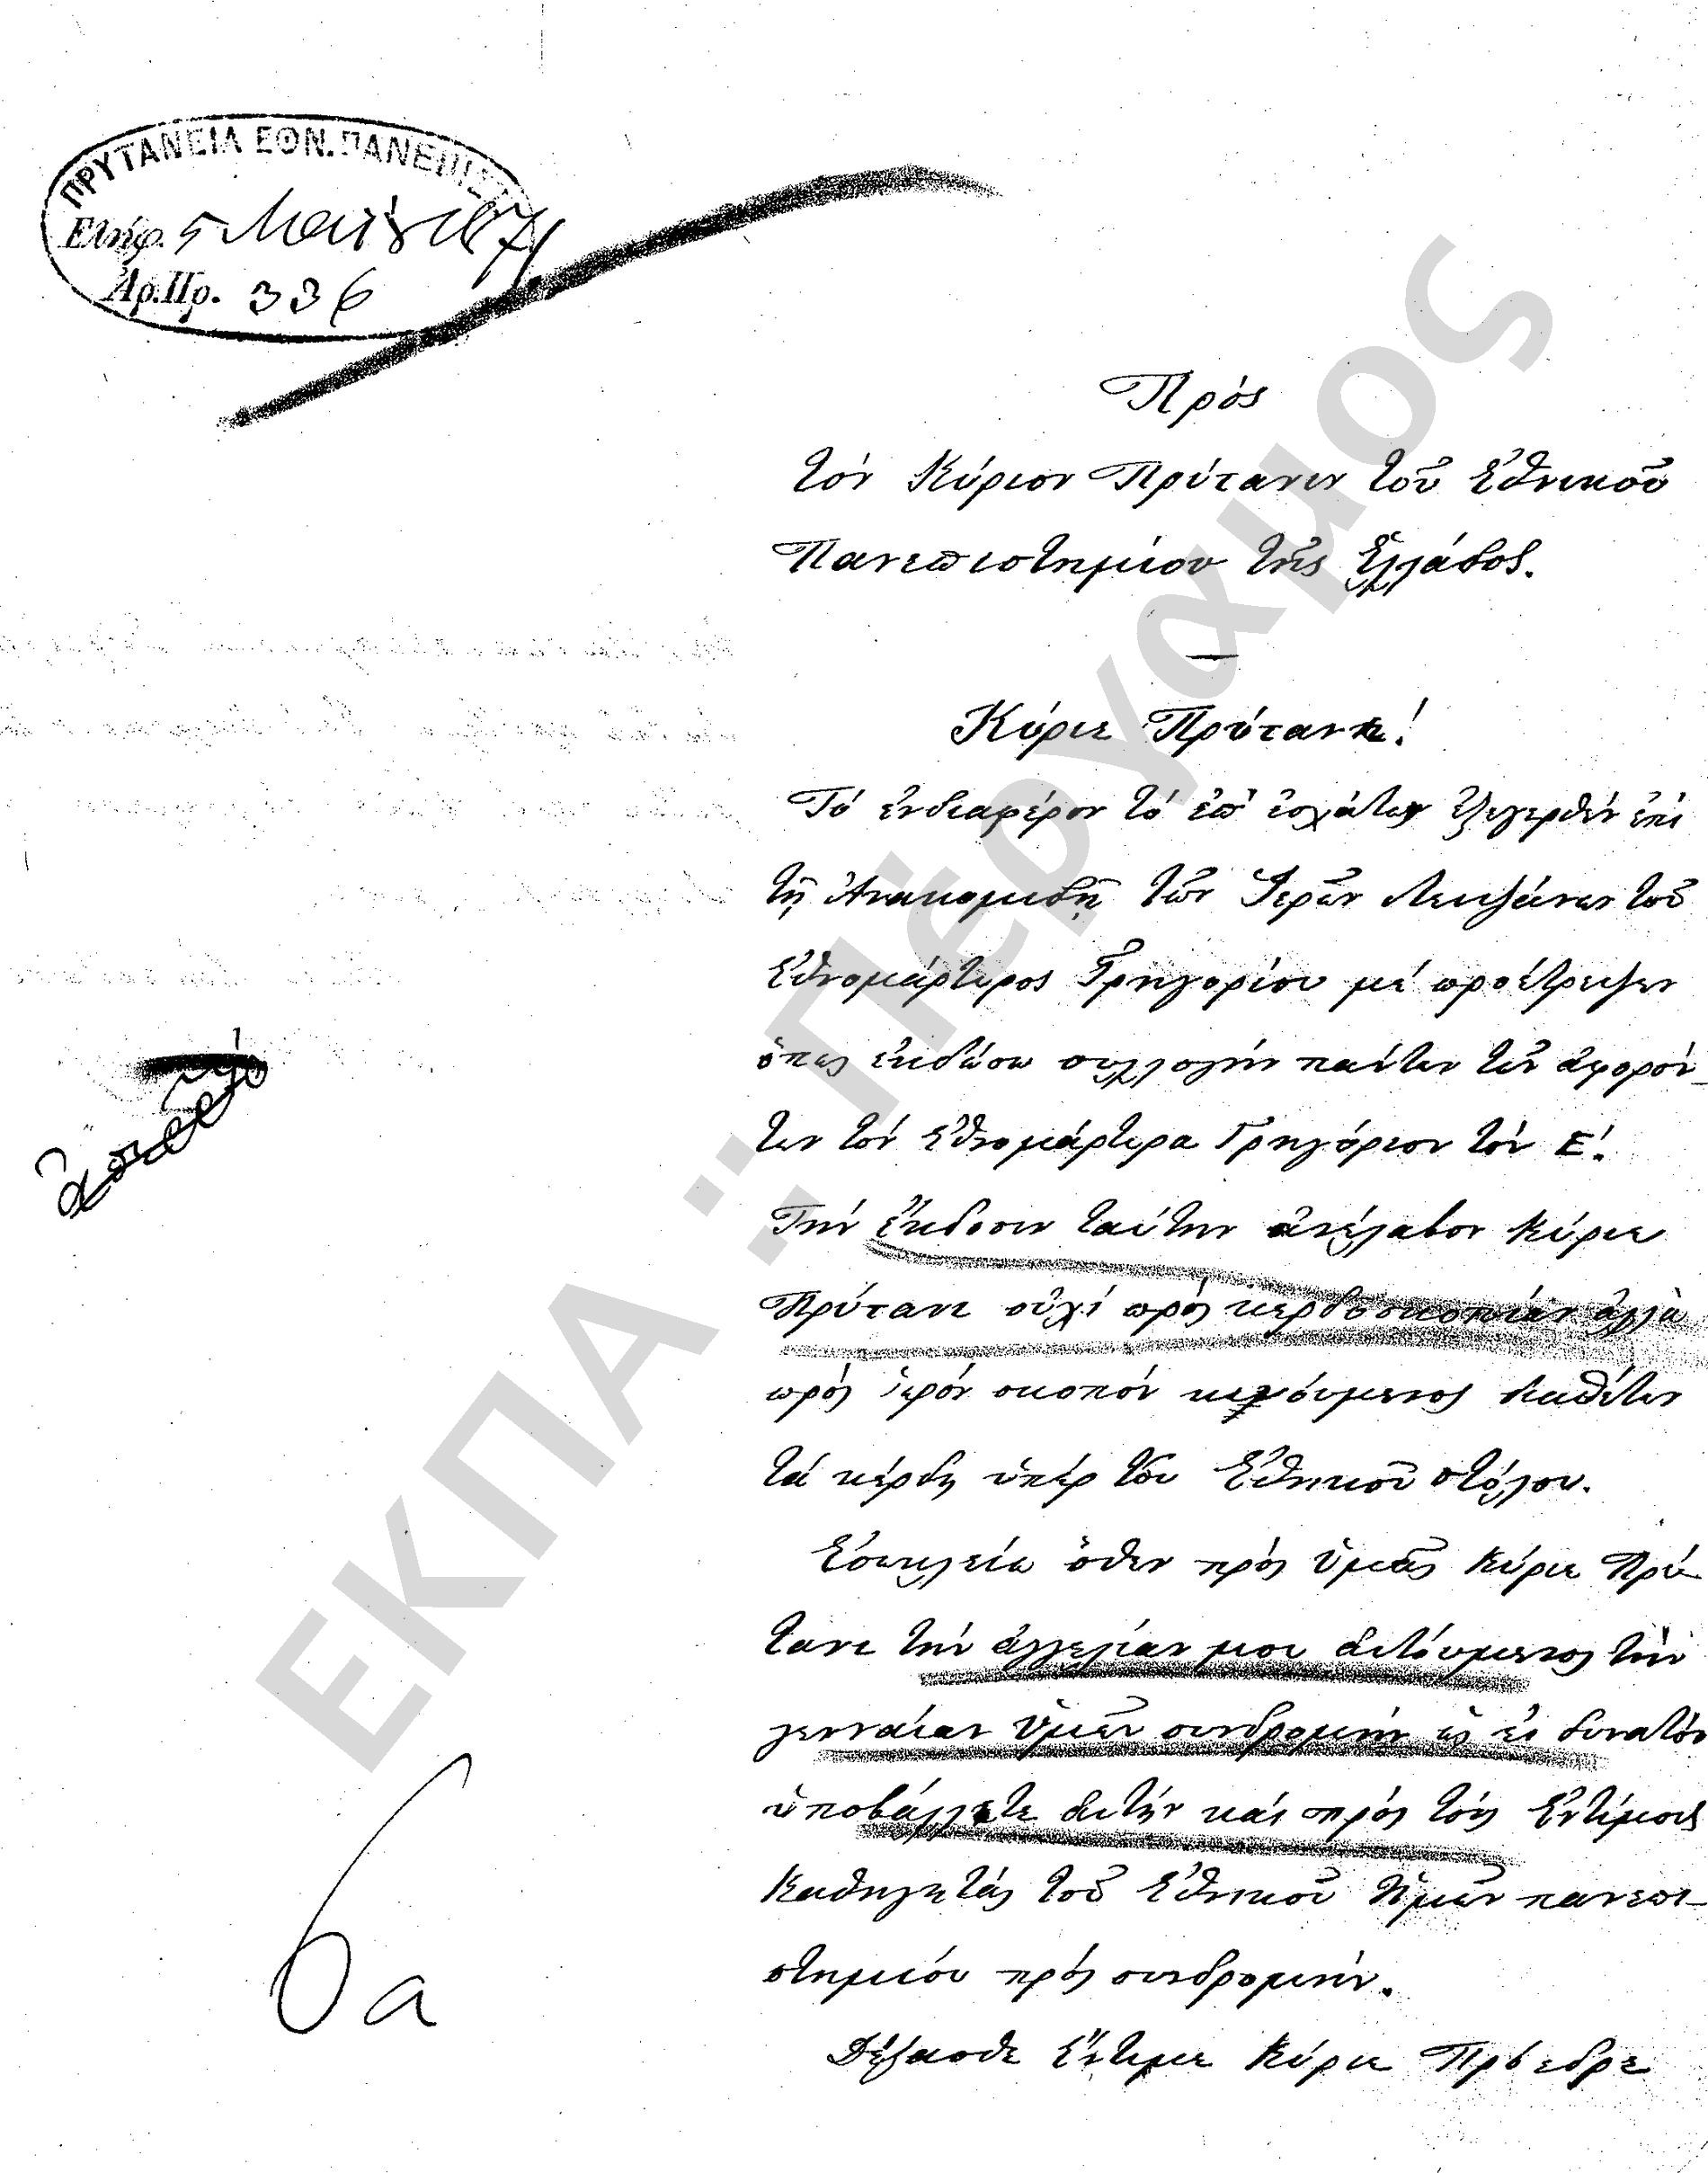 ΠΡΥΤΑΝΕΙΑ ΕΘΝ. ΠΑΝΕΠΙΣΤ
Ελήφ. 5 Μαΐου 1871
Ἀρ. Πρ. 336
Πρός
τόν Κύριον Πρύτανιν τοῦ Ἐθνικοῦ
Πανεπιστημίου τῆς Ἑλλάδος.
Κύριε Πρύτανι!
Τό ἐνδιαφέρον τό ἐπ' ἐσχάτων ἐξεγερθέν ἐπί
τῇ Ἀνακομιδῇ τῶν Ἱερῶν Λειψάνων τοῦ
Ἐθνομάρτυρος Γρηγορίου μέ προέτρεψεν
ὅπως ἐκδώσω συλλογήν πάντων τῶν ἀφορόν-
των τόν Ἐθνομάρτυρα Γρηγόριον τόν Ε΄.
Τήν ἔκδοσιν ταύτην ἀνέλαβον Κύριε
Πρύτανι οὐχί πρός κερδοσκοπίαν ἀλλά
πρός ἱερόν σκοπόν
τά κέρδη ὑπέρ τοῦ Ἐθνικοῦ στόλου.
ὅθεν πρός Ὑμᾶς Κύριε Πρύ-
τανι τήν ἀγγελίαν μου αἰτούμενος τήν
γενναίαν Ὑμῶν συνδρομήν ὡς εἰ δυνατόν
ὑποβάλλετε αὐτήν καί πρός τούς Ἐντίμους
Καθηγητάς τοῦ Ἐθνικοῦ Ἡμῶν πανεπι-
στημίου πρός συνδρομήν.
Δέξασθε Ἔντιμε Κύριε Πρόεδρε
6α
ΕΚΠΑ : Πέργαμος